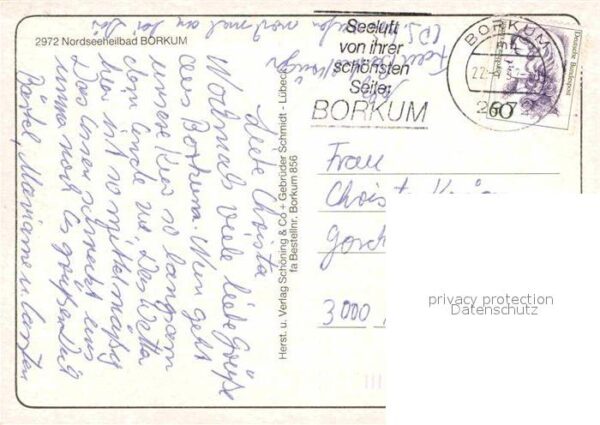 2972 Nordseeheilbad BORKUM
Liebe Christa
Nochmals viele liebe Grüße
aus Borkum. Nun geht
unsere Kur so langsam
dem Ende zu. Das Wetter
hier ist so mittelmäßig
Das Essen schmeckt uns
immer noch. Es grüßen Dich
Bärbel, Marianne u. Carsten
Herst. u. Verlag Schöning & Co + Gebrüder Schmidt - Lübeck
fa Bestellnr. Borkum 856
Seeluft
von ihrer
schönsten
Seite:
BORKUM
BORKUM
22.
2972
60
Deutsche Bundespost
Frau
Christa
3000
privacy protection
Datenschutz